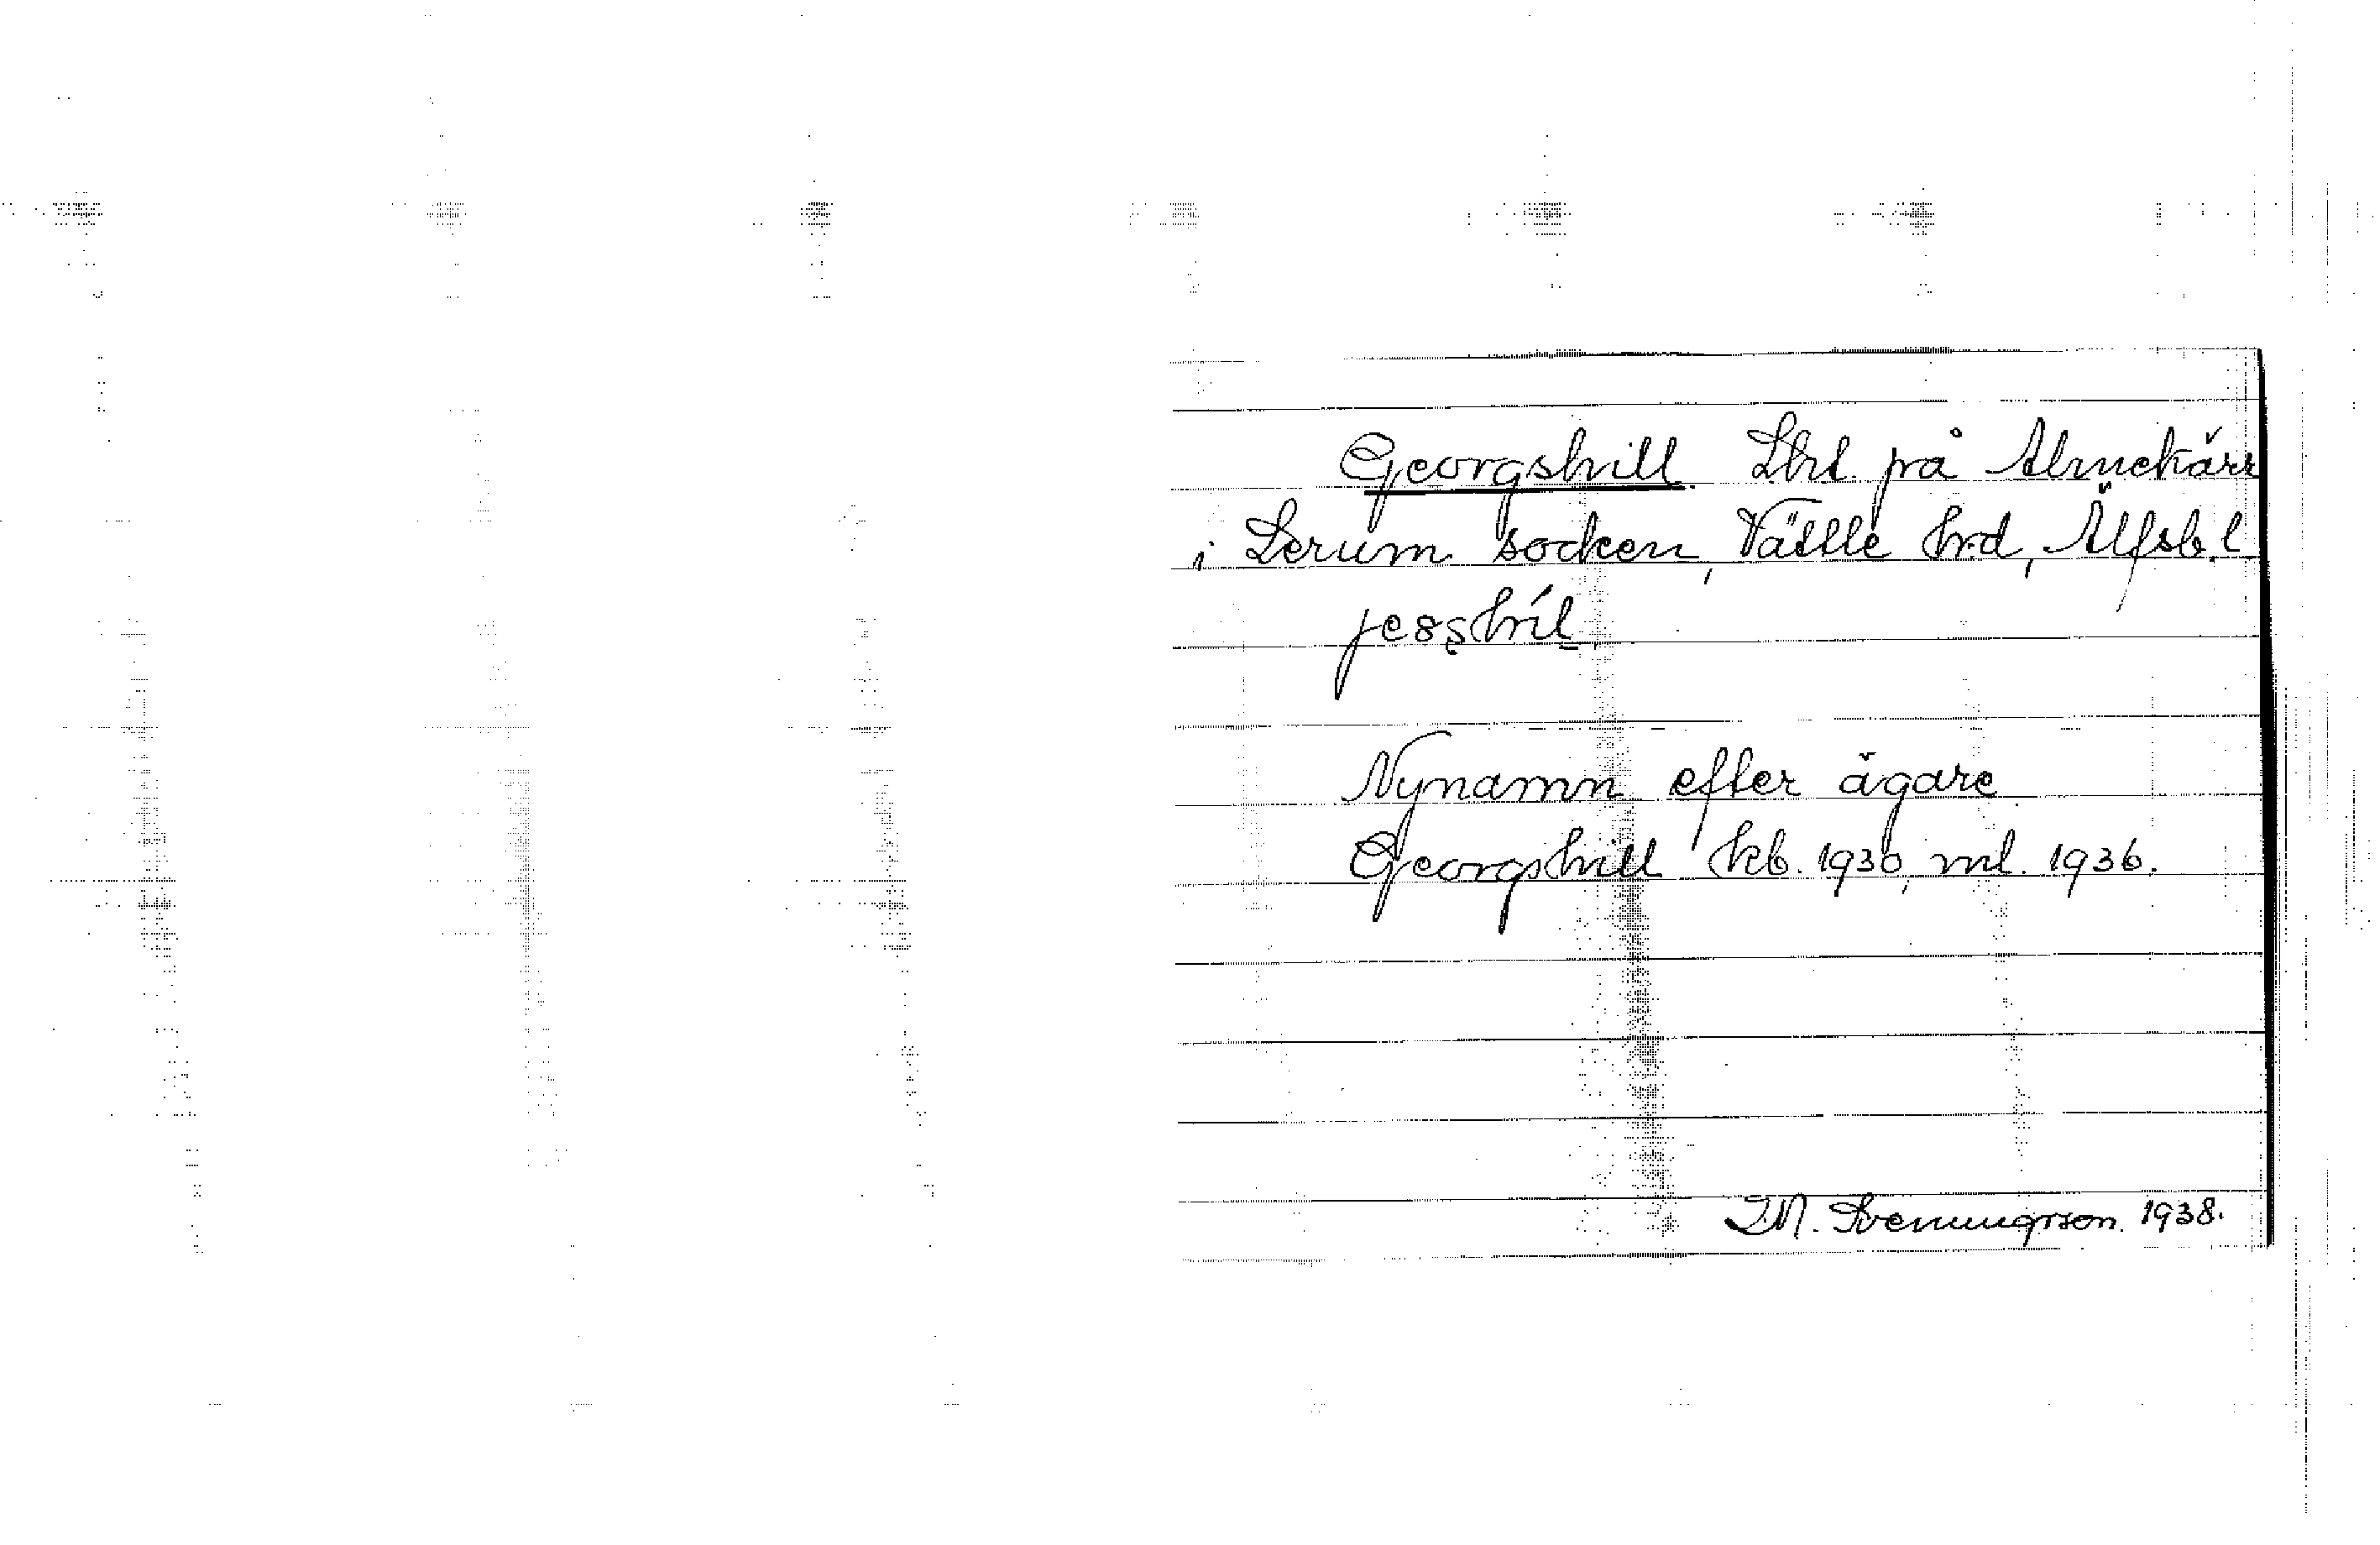 Georgshill. Lht. på Almekärr
i Lerum socken, Vättle hrd, Älfsb. l.
Nynamn efter ägare
Georgshill kb. 1930, ml. 1936.
J.M. Svenungsson. 1938.